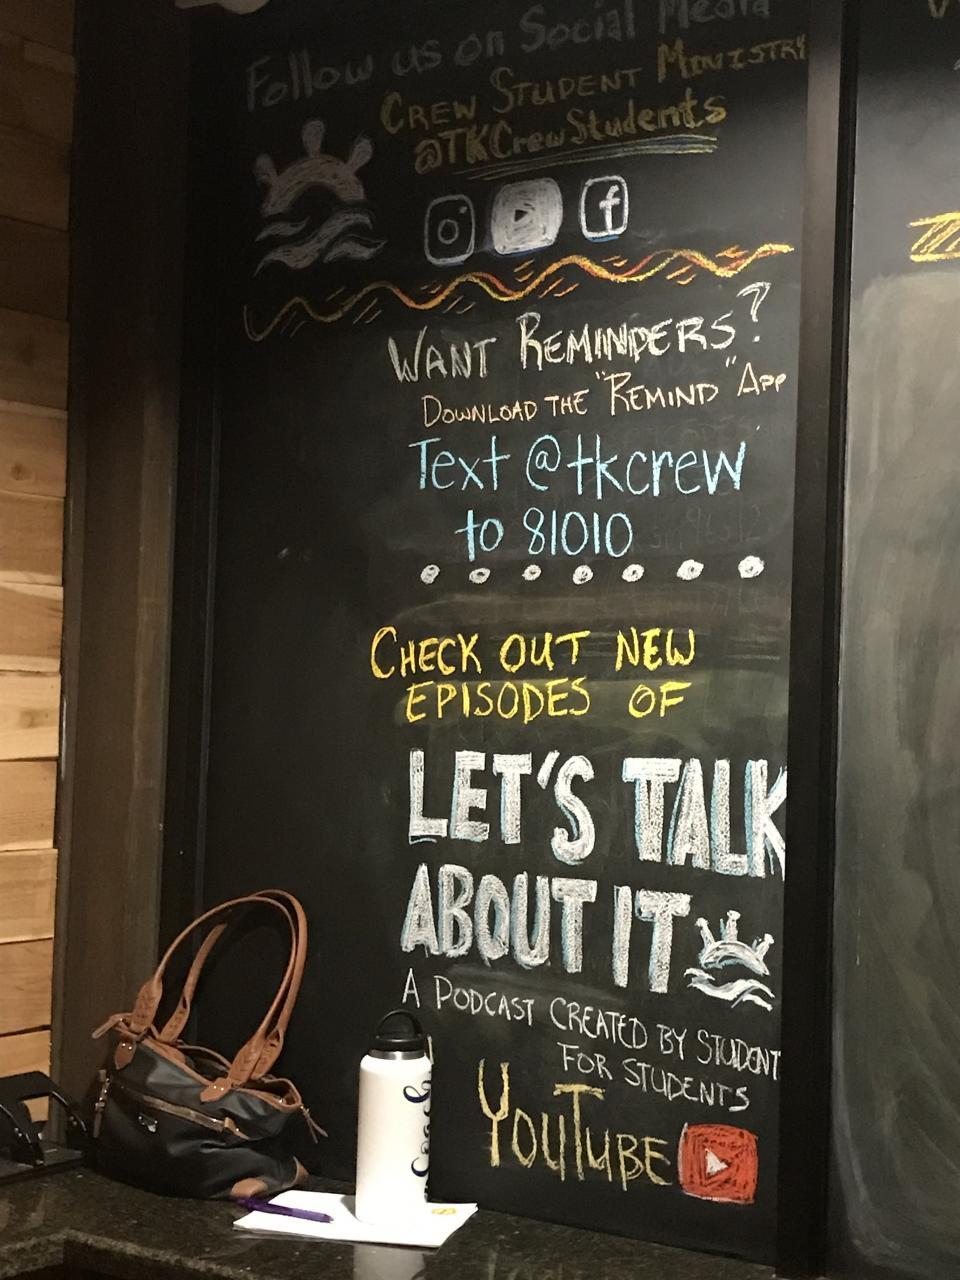 Follow us on Social Media
CREW STUDENT MINISTRY
@TKCrewStudents
WANT REMINDERS?
DOWNLOAD THE "REMIND" APP
Text @tkcrew
to 81010
CHECK OUT NEW
EPISODES OF
LET'S TALK
ABOUT IT
A PODCAST CREATED BY STUDENT
FOR STUDENTS
YOUTUBE
Coach